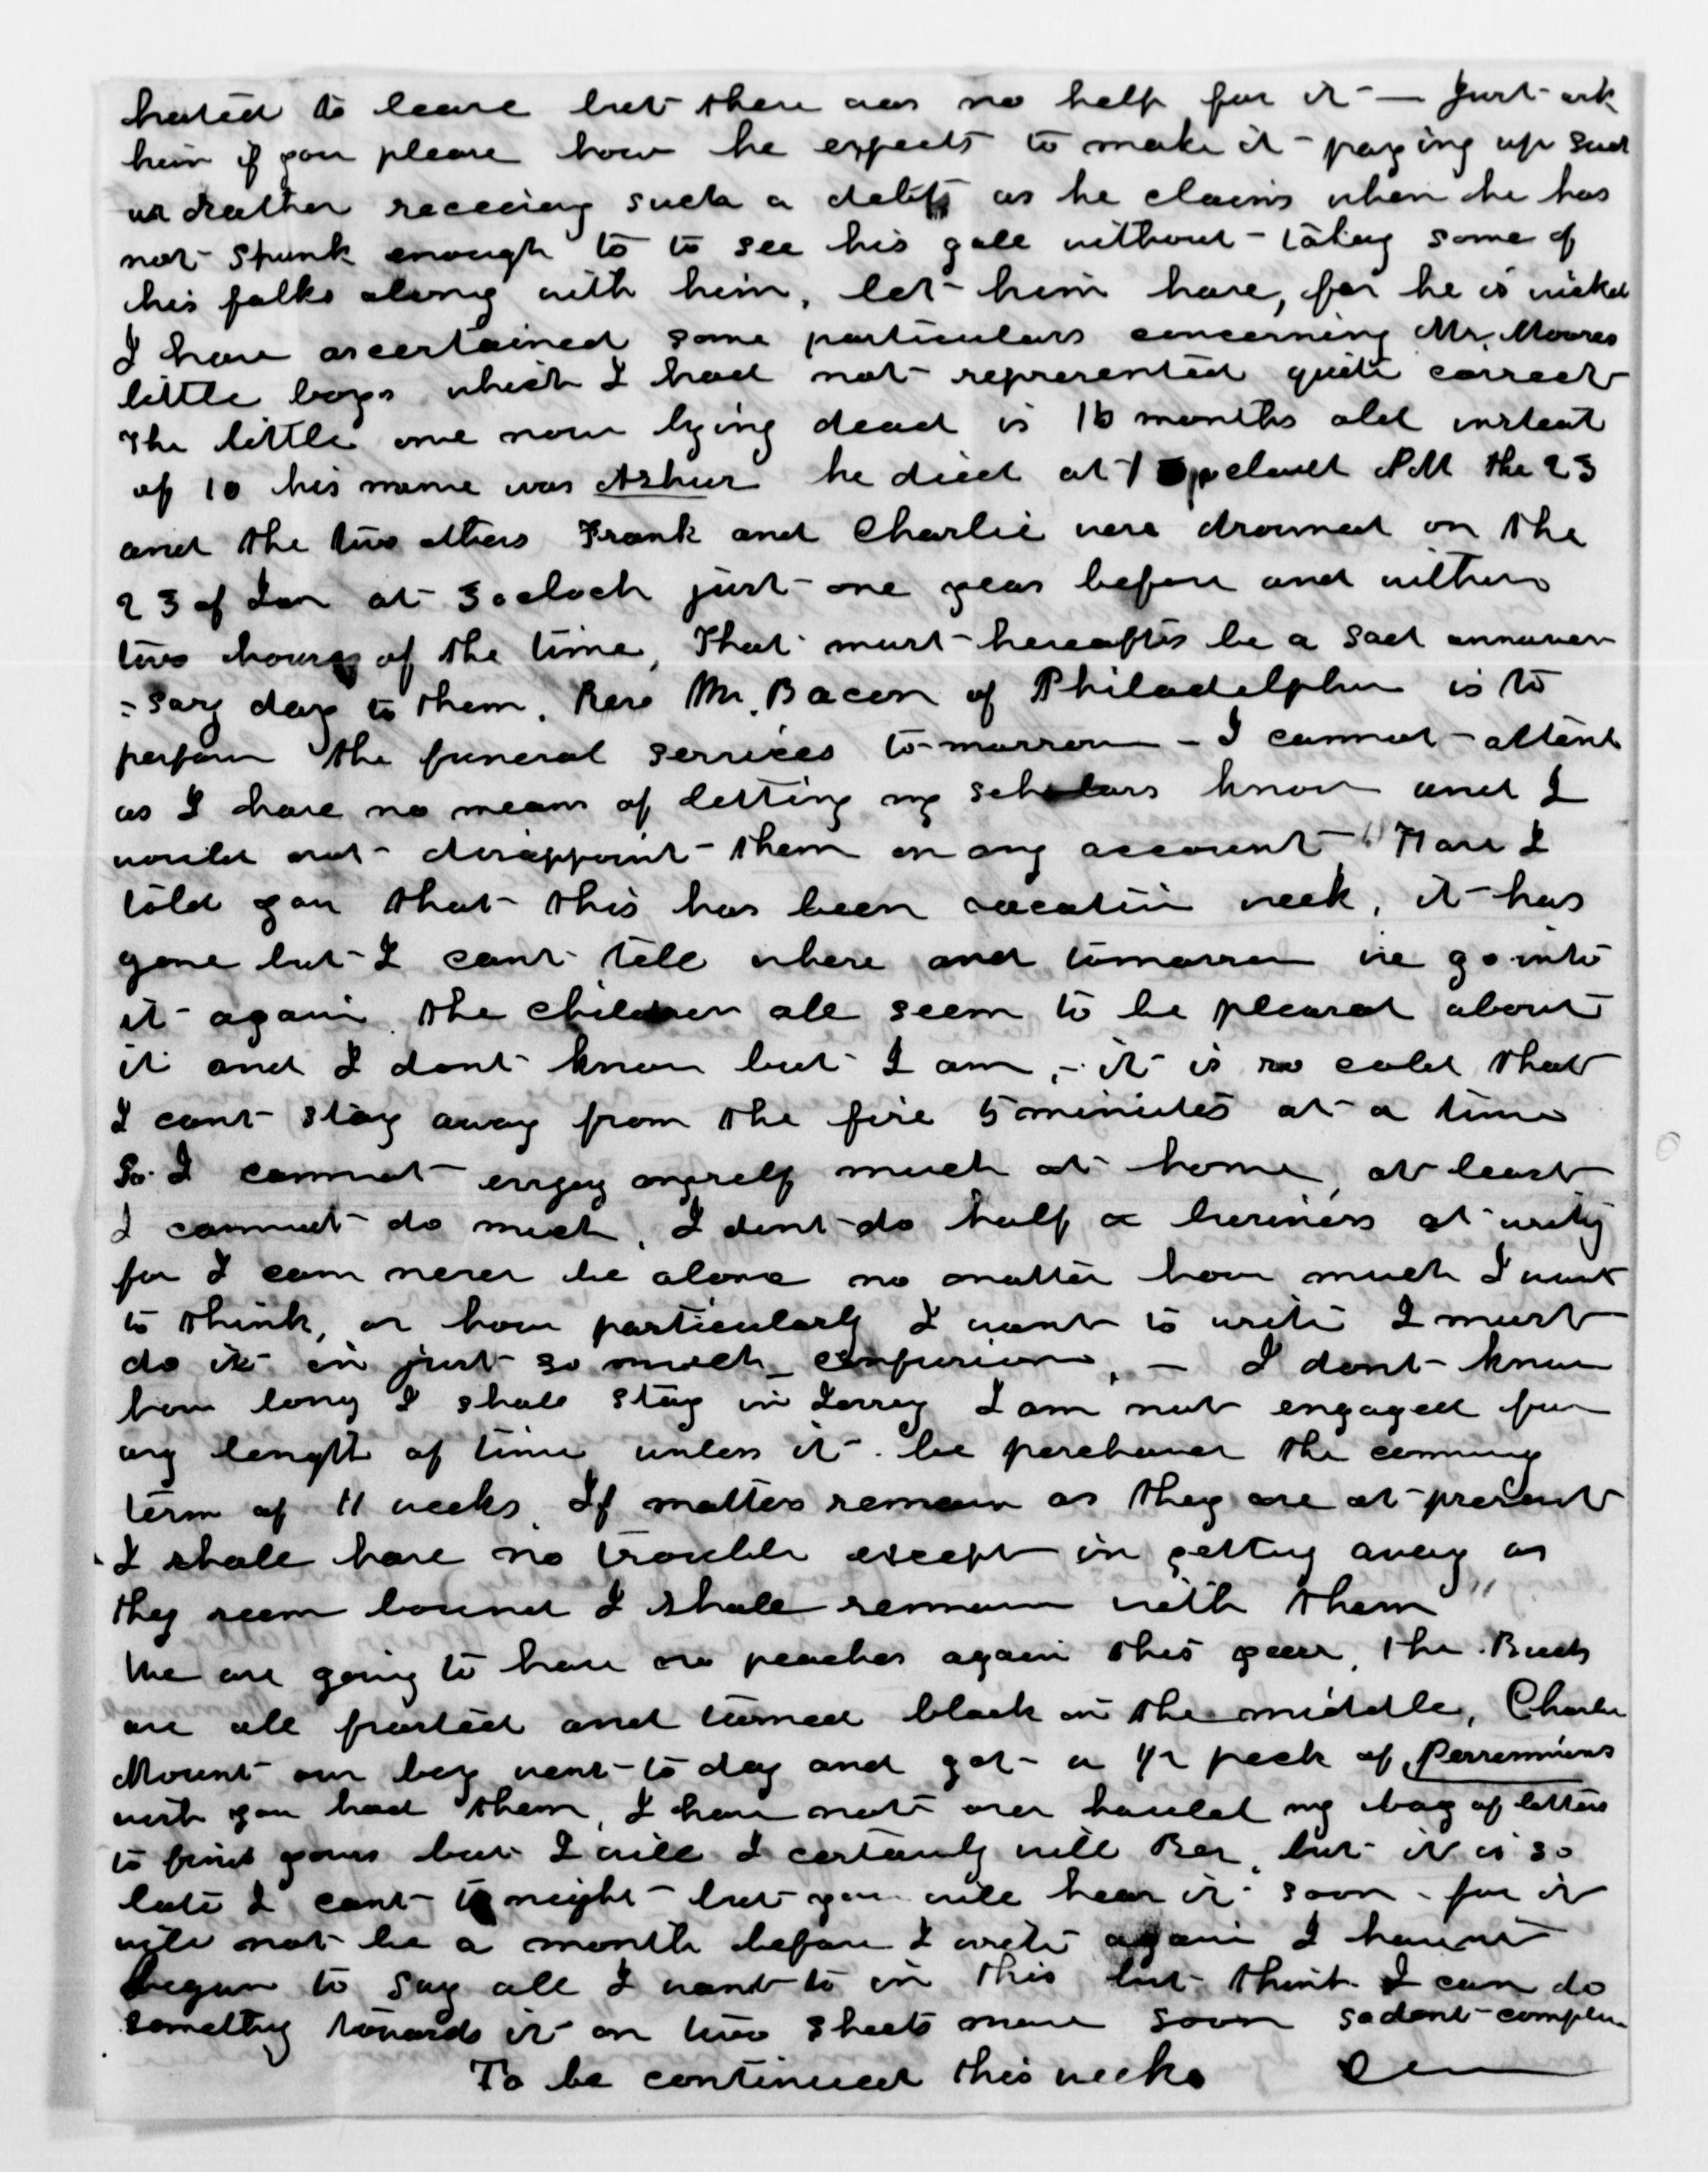 hated to leave but there was no help for it — Just ask
him if you please how he expects to make it - paying up such
or rather such a debt as he claims when he has
not spunk enough to to see his gall without - taking some of
his folks along with him, let him have, for he is wicked
I have ascertained some particulars concerning Mr. Moores
little boys which I had not represented quite correct
The little one now lying dead is 16 months old insteat
of 10 his name was he died at 1 PM the 23
and the two others Frank and Charlie were drowned on the
23 of Jan at 3 oclock just one year before and within
two hours of the time, That must hereafter be a sad anniver
=sary day to them. Rev Mr. Bacon of Philadelphia is to
perform the funeral services to-morrow - I cannot attend
as I have no means of letting my scholars know and I
would not disappoint them on any account " Have I
told you that this has been vacation week, it has
gone but I cant tell where and tomorrow we go into
it again. the children all seem to be pleased about
it and I dont know but I am, - it is so cold that
I cant stay away from the fire 5 minutes at a time
So I cannot enjoy myself much at home, at least
I cannot do much, I dont do half a business at writing
for I can never be alone no matter how much I want
to think, or how particularly I want to write I must
do it in just so much confusion, - I dont know
how long I shall stay in Jersey I am not engaged for
any length of time unless it be perchance the coming
term of 11 weeks. If matters remain as they are at present
I shall have no trouble except in getting away as
they seem bound I shall remain with them "
We are going to have no peaches again this year, the Buds
are all frosted and turned black in the middle, Charlie
Mount our boy went to day and got a 1/2 peck of Perremmions
wish you had them, I have not over hauled my bag of letters
to find yours but I will I certainly will Ber, but it is so
late I cant to night - but you will hear it soon - for it
will not be a month before I write again I havent
begun to say all I want to in this but think I can do
something towards it on two sheets more soon so dont complain
To be continued this week